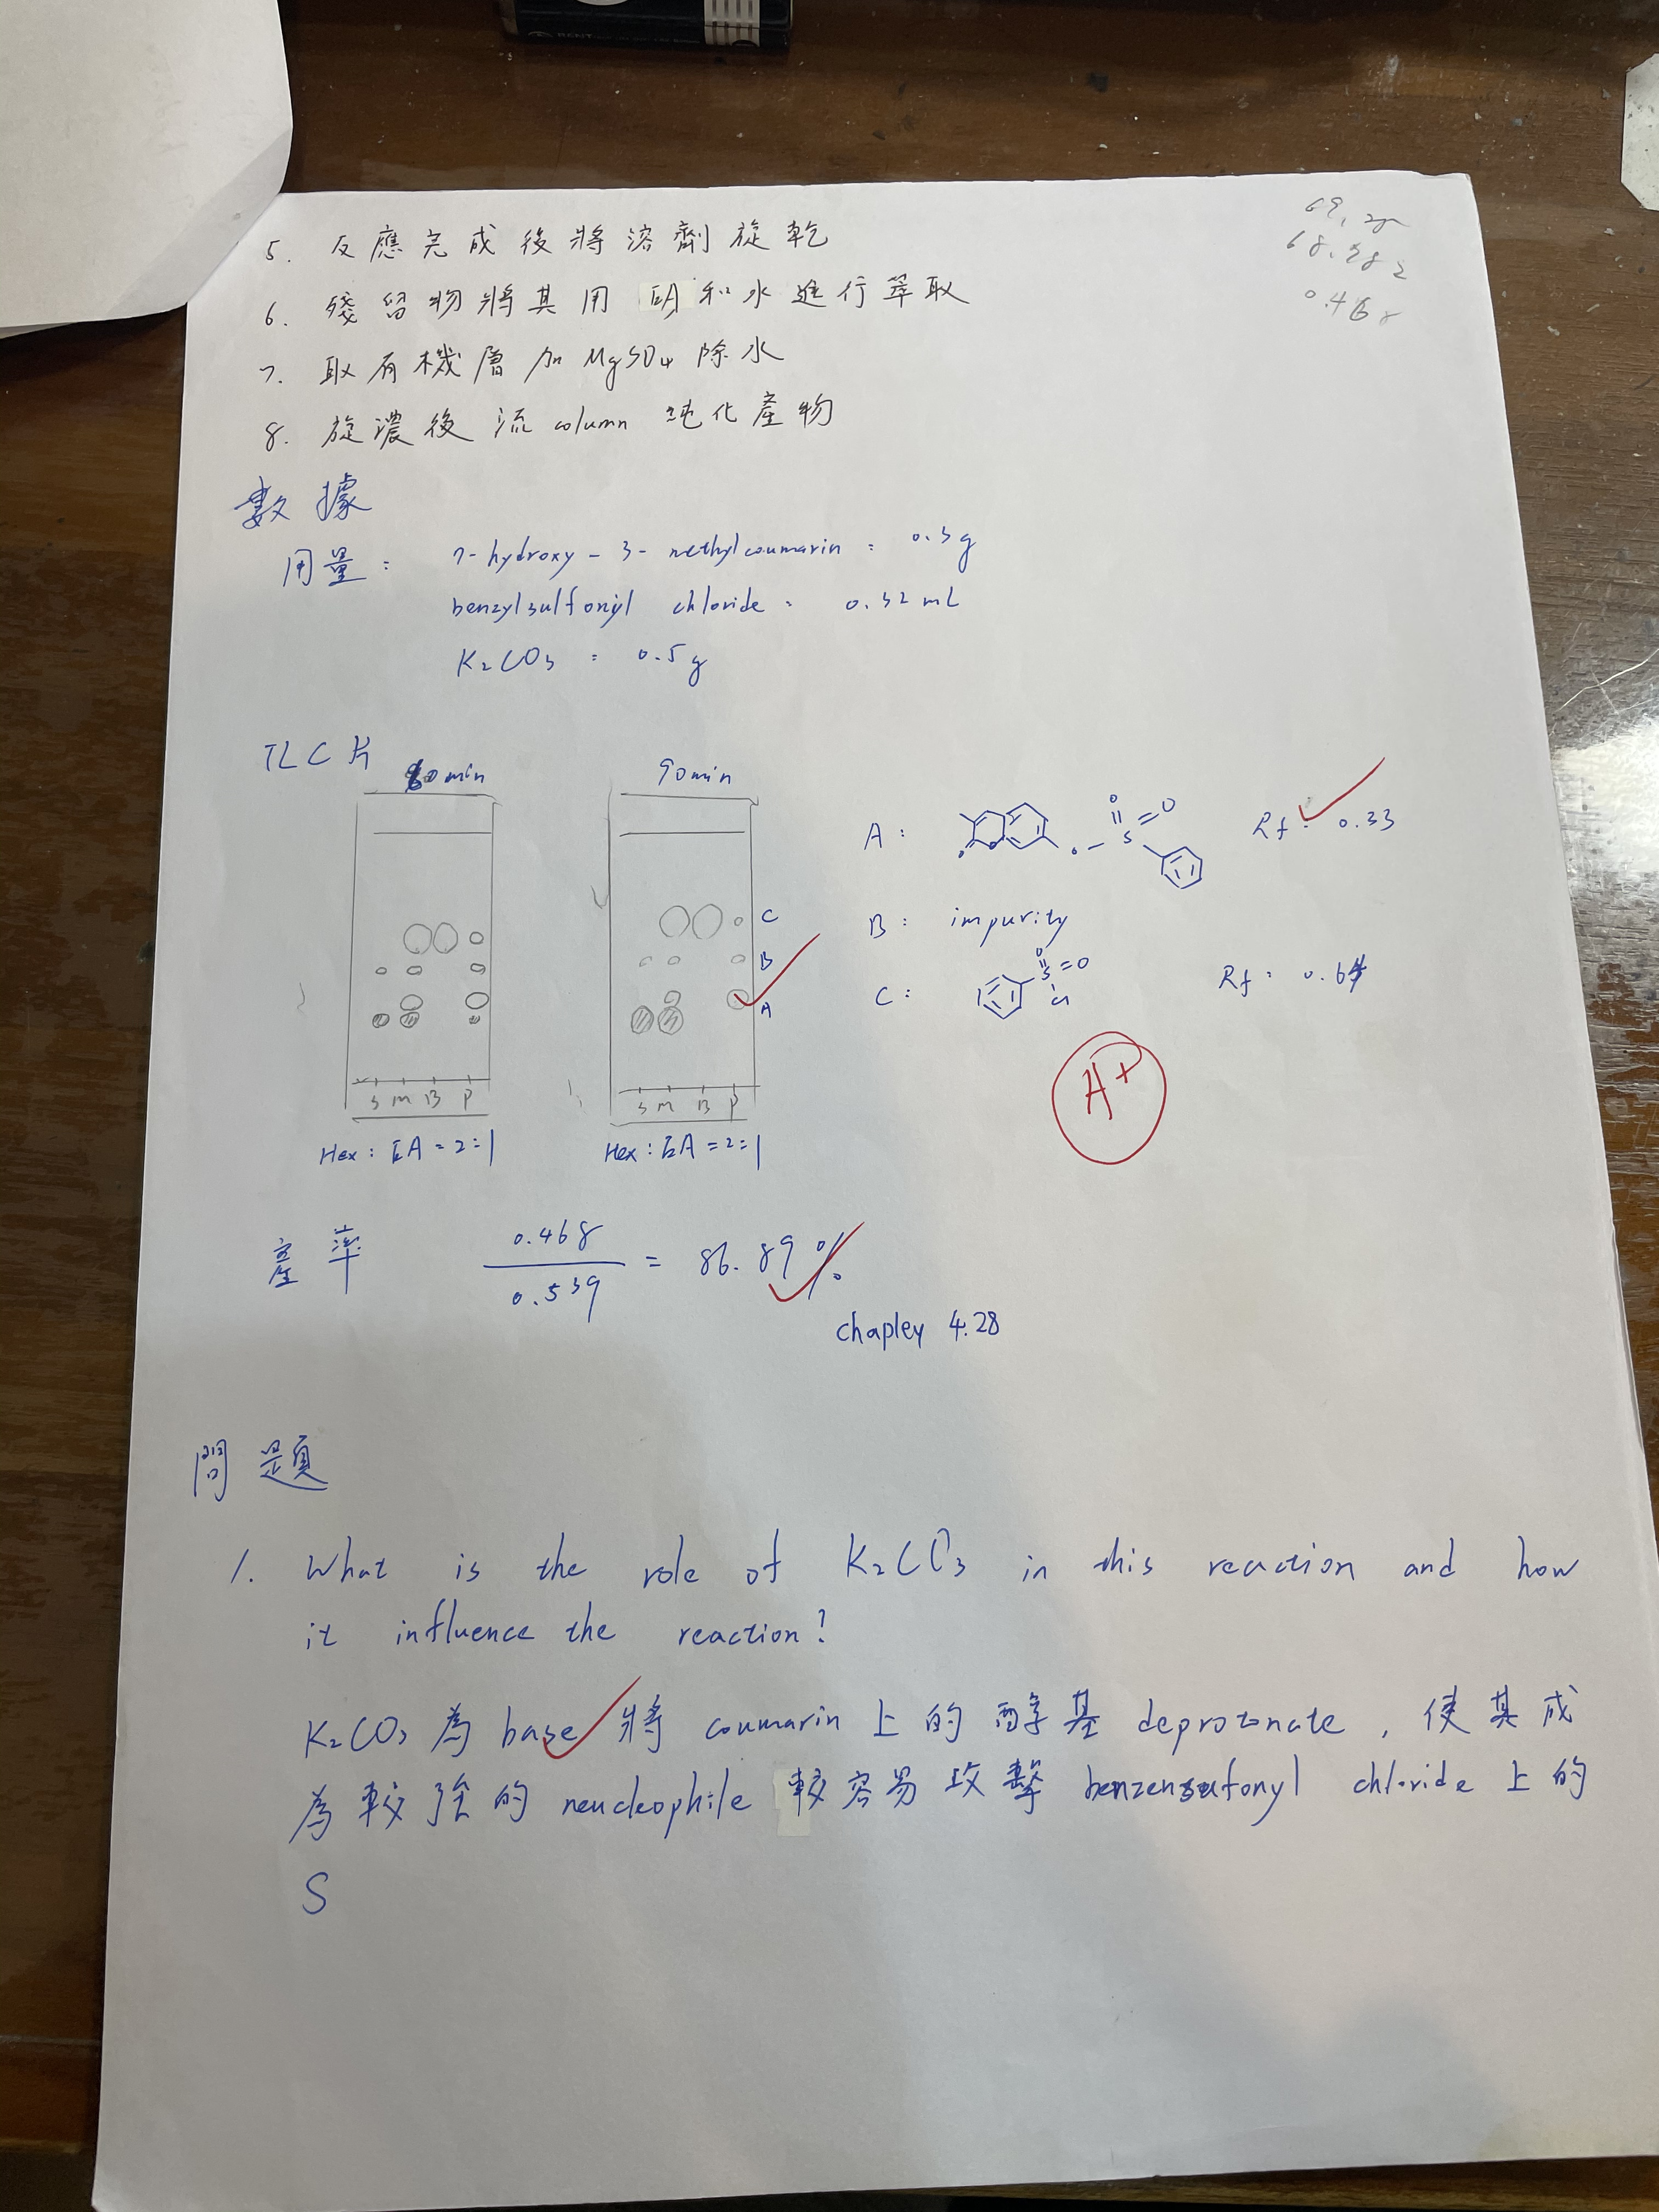 0.468
5. 反應完成後將溶劑旋乾
6. 殘留物將其用 EA 和水進行萃取
7. 取有機層加 MgSO4 除水
8. 旋濃後流 column 純化產物
數據
用量: 7-hydroxy-3-methylcoumarin: 0.3g
benzylsulfonyl chloride: 0.32 mL
K2CO3: 0.5g
TLC片
0min
90min
A: O O O O S O Rf: 0.33
C
B
A
B: impurity
C: O S=O Cl Rf: 0.64
A+
S M B P
S M B P
Hex: EA = 2:1
Hex: EA = 2:1
產率 0.468
0.539
= 86.89%
chapley 4.28
問題
1. What is the role of K2CO3 in this reaction and how
it influence the reaction?
K2CO3 為 base 將 coumarin 上的醇基 deprotonate, 使其成
為較強的 neucleophile 較容易攻擊 benzensufonyl chloride 上的
S